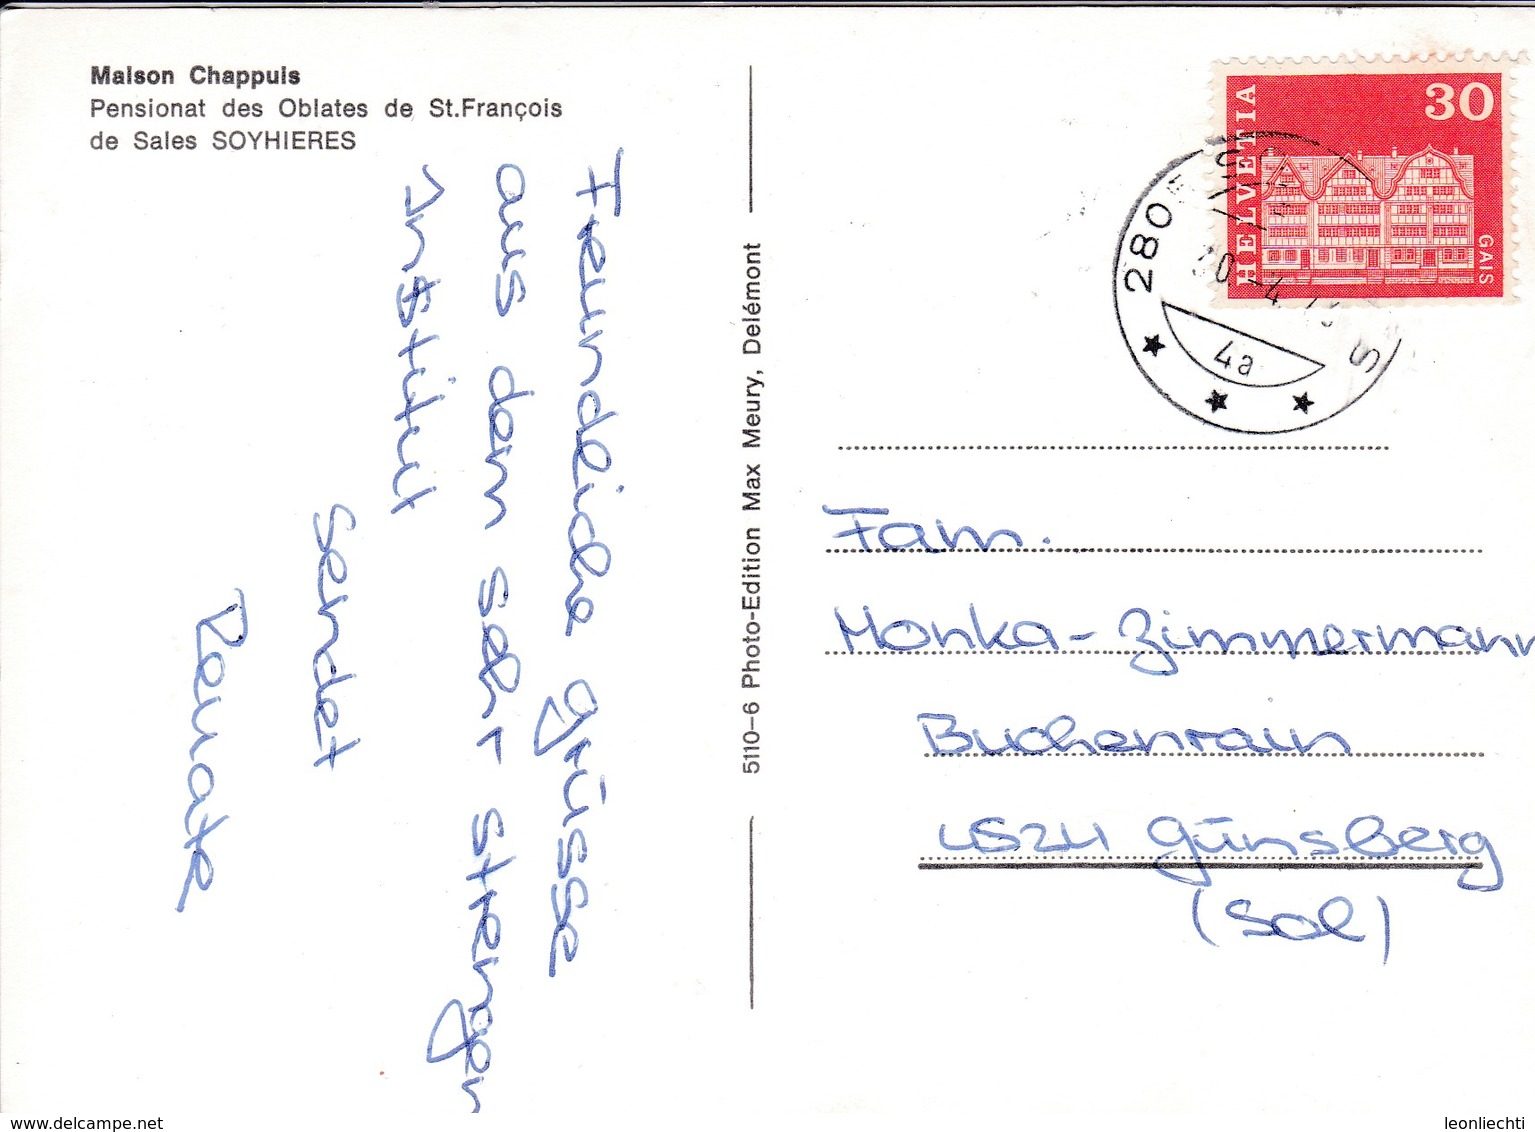 Maison Chappuis
Pensionat des Oblates de St.François
de Sales SOYHIERES
Freundliche grüsse
aus dem sehr strengen
Institut
sendet
Renate
5110–6 Photo-Edition Max Meury, Delémont
HELVETIA
30
GAIS
280
4a
Fam.
Monka-Zimmermann
Buchenrain
4524 günsberg
(Sol)
www.delcampe.net
leonliechti